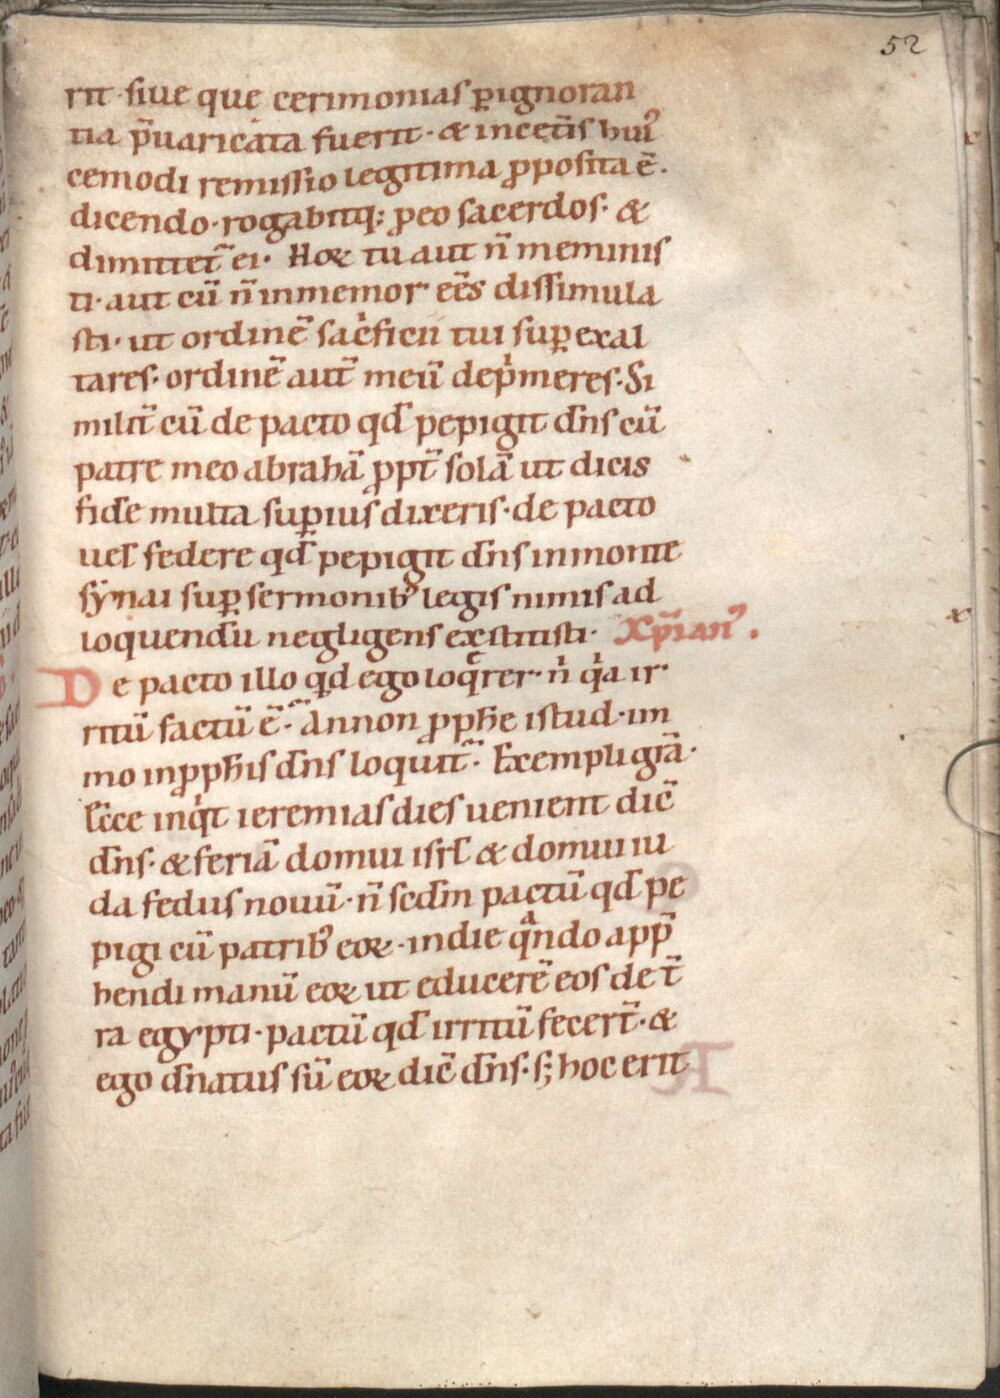 52
rit · siue que cerimonias ꝑ ignoran
tia p̄uaricata fuerit · & in cet̄is hui᾽
cemodi remissio legitima ꝓposita ē .
dicendo · rogabitq; ꝓ eo sacerdos · &
dimittet̄ ei · Hoꝝ tu aut n̄ meminis
ti · aut cū n̄ inmemor eēs dissimula
sti · ut ordinē sac̍ficii tui suꝑexal
tares · ordinē aut̄ meū dep̍meres · Si
milit̄ cū de pacto qđ pepigit dn̄s cū
patre meo abrahā ꝓpt̄ solā ut dicis
fidē multa suꝑius dixeris · de pacto
uel̄ federe qđ pepigit dn̄s in monte
synai suꝑ sermonib᾽ legis nimis ad
loquendū negligens exstitisti · Xp̄ian᾽ .
De pacto illo qd ego loq̄rer · n̍ q̍a ir
ritū factū ē · An non ꝓphe istud · im
mo in ꝓph̄is dn̄s loquit̄ · Exempli gr̄a ·
Ecce inq̍t ieremias dies uenient dic̄
dn̄s · & feriā domui isrl̄ & domui iu
da fedus nouū · n̄ scd̄m pactū qđ pe
pigi cū patrib᾽ eoꝝ · in die qͣndo app̄
hendi manū eoꝝ ut educerē eos de t̄
ra egypti · pactū qđ irritū fecert̄ · &
ego dn̄atus sū eoꝝ dic̄ dn̄s · s; hoc erit